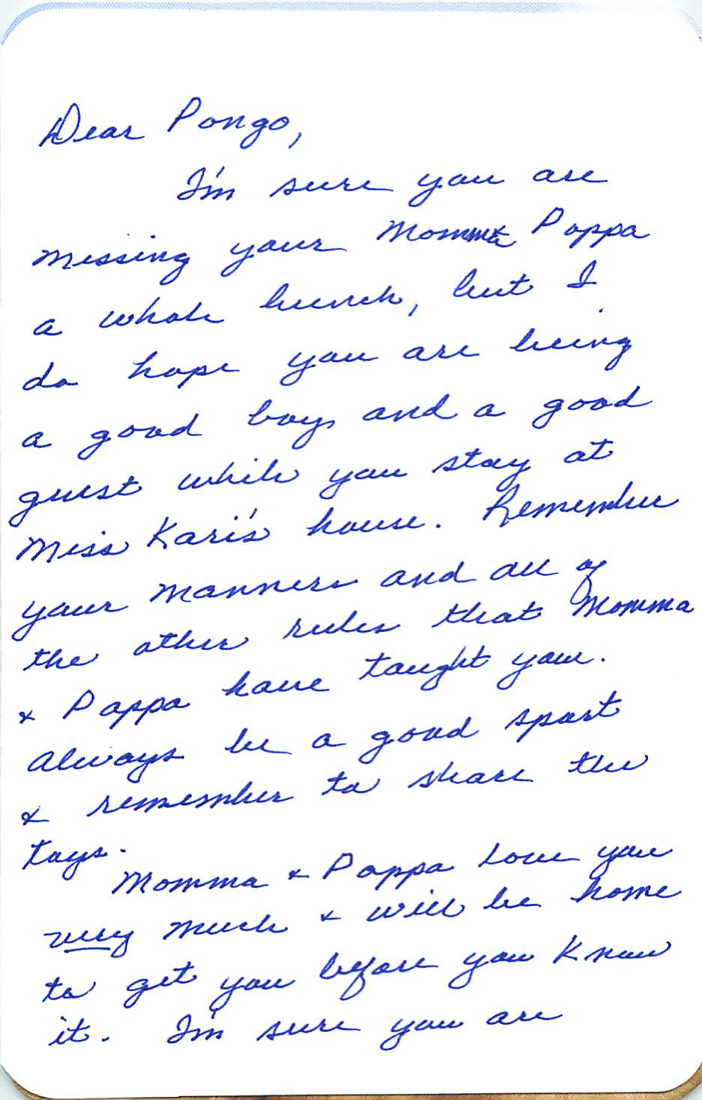 Dear Pongo,
I'm sure you are
missing your Momma & Poppa
a whole bunch, but I
do hope you are being
a good boy, and a good
guest while you stay at
Miss Kari's house. Remember
your manners and all of
the other rules that Momma
& Poppa have taught you.
Always be a good sport
& remember to share the
toys.
Momma & Poppa love you
very much & will be home
to get you before you know
it. I'm sure you are